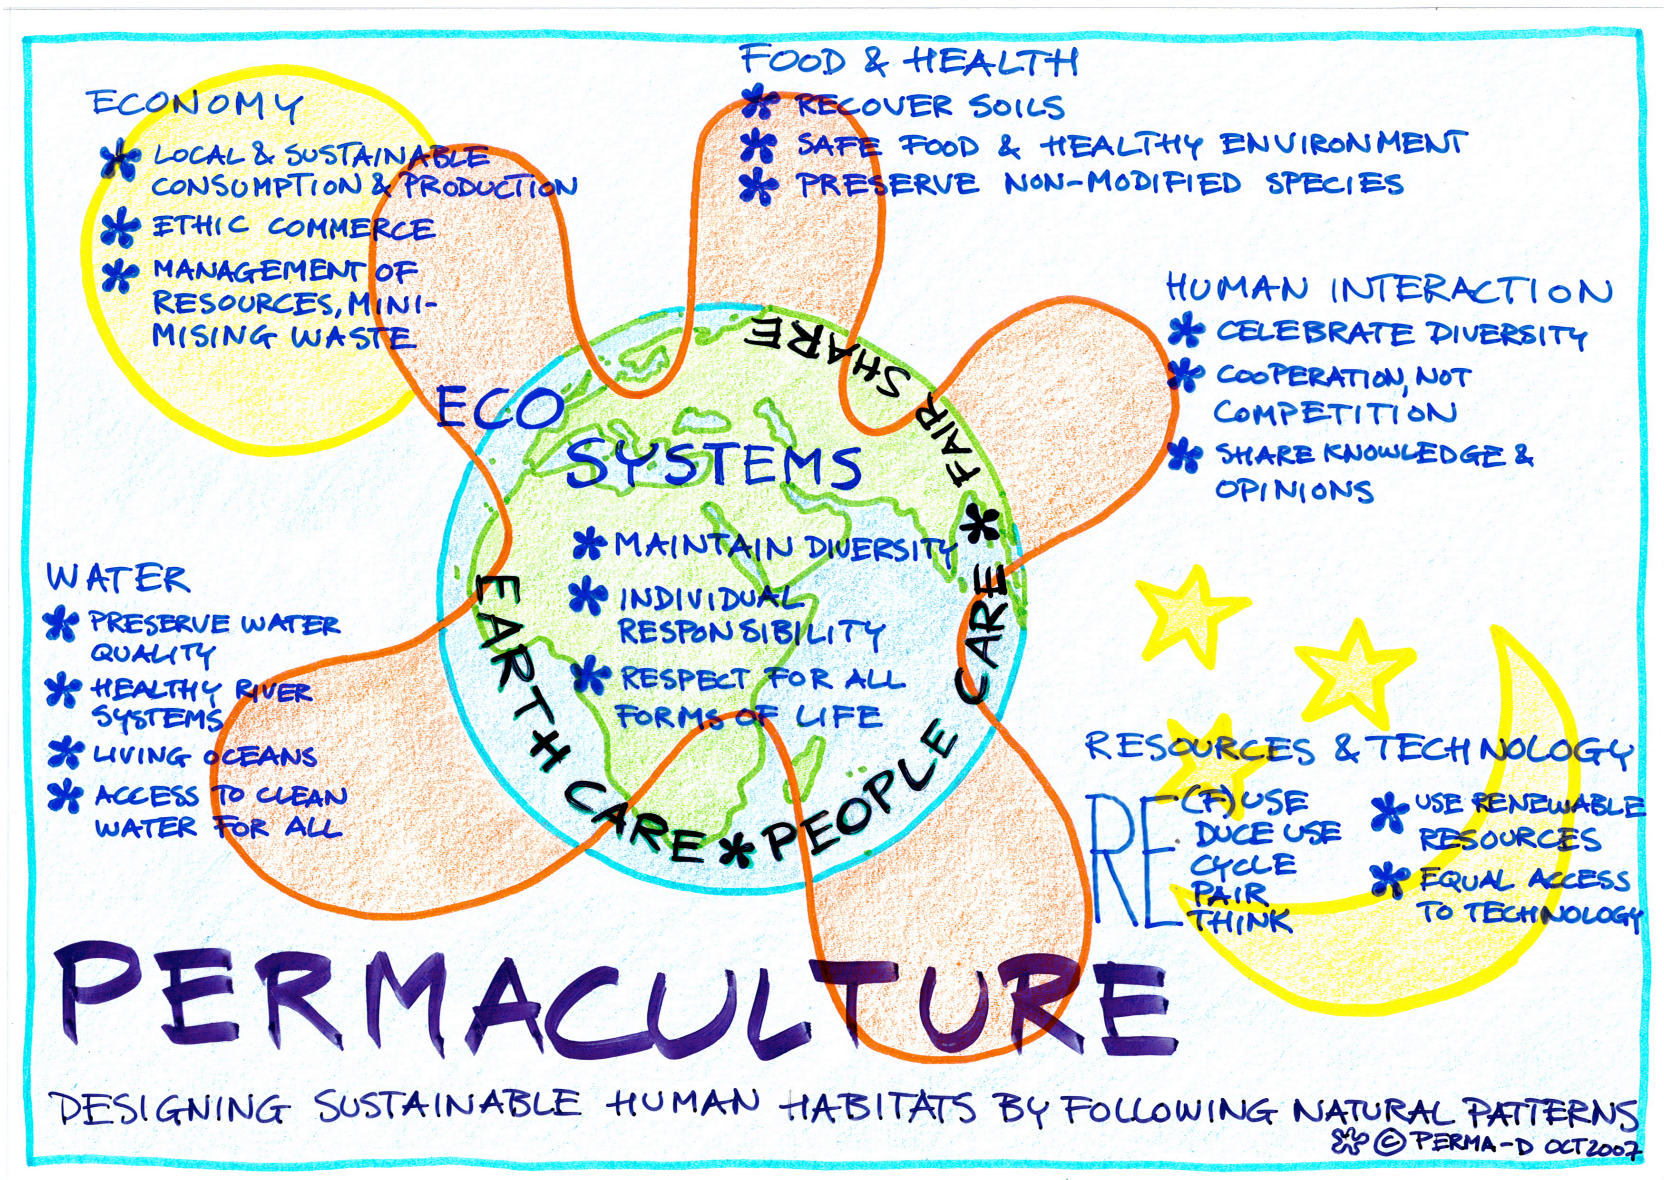 ECONOMY
LOCAL & SUSTAINABLE
CONSUMPTION & PRODUCTION
ETHIC COMMERCE
MANAGEMENT OF
RESOURCES, MINI-
MISING WASTE
FOOD & HEALTH
RECOVER SOILS
SAFE FOOD & HEALTHY ENVIRONMENT
PRESERVE NON-MODIFIED SPECIES
HUMAN INTERACTION
CELEBRATE DIVERSITY
COOPERATION, NOT
COMPETITION
SHARE KNOWLEDGE &
OPINIONS
ECO
SYSTEMS
MAINTAIN DIVERSITY
INDIVIDUAL
RESPONSIBILITY
RESPECT FOR ALL
FORMS OF LIFE
EARTH CARE * PEOPLE CARE * FAIR SHARE
WATER
PRESERVE WATER
QUALITY
HEALTHY RIVER
SYSTEMS
LIVING OCEANS
ACCESS TO CLEAN
WATER FOR ALL
RESOURCES & TECHNOLOGY
RE
(F)USE
DUCE USE
CYCLE
PAIR
THINK
USE RENEWABLE
RESOURCES
EQUAL ACCESS
TO TECHNOLOGY
PERMACULTURE
DESIGNING SUSTAINABLE HUMAN HABITATS BY FOLLOWING NATURAL PATTERNS
© PERMA-D OCT 2007